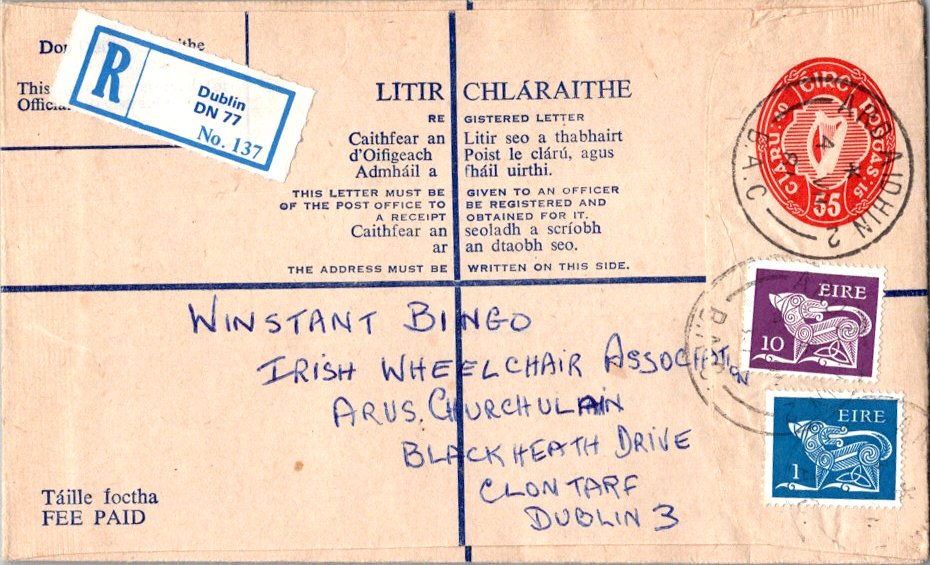 Dublin
DN 77
No. 137
R
This
LITIR CHLÁRAITHE
REGISTERED LETTER
Caithfear an Litir seo a thabhairt
d'Oifigeach Poist le clárú, agus
Admháil a fháil uirthi.
THIS LETTER MUST BE GIVEN TO AN OFFICER
OF THE POST OFFICE TO BE REGISTERED AND
A RECEIPT OBTAINED FOR IT.
Caithfear an seoladh a scríobh
ar an dtaobh seo.
THE ADDRESS MUST BE WRITTEN ON THIS SIDE.
CLÁRÚ: 40
POSTAS: 15
55
B.A.C
2
ÉIRE
10
ÉIRE
1
WINSTANT BINGO
IRISH WHEELCHAIR ASSOCIATN
ARUS CHURCHULAIN
BLACKHEATH DRIVE
CLONTARF
DUBLIN 3
Táille íoctha
FEE PAID